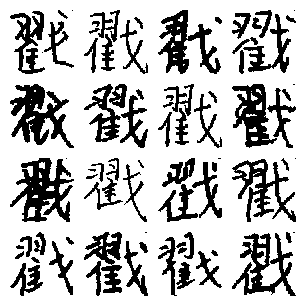 戳戳戳戳
戳戳戳戳
戳戳戳戳
戳戳戳戳